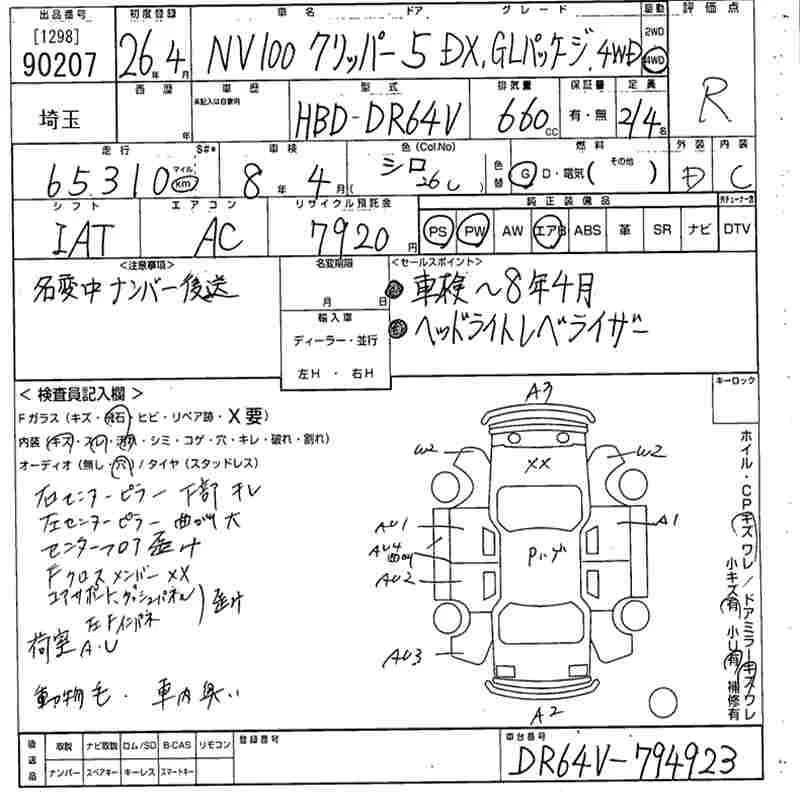 出品番号 初度登録 車名 ドア グレード 駆動 評価点
[1298]
90207 26年4月 NV100 クリッパー 5 DX,GLパッケージ,4WD 2WD 4WD R
埼玉 西歴 年 車歴 未記入は自家用 型式 HBD-DR64V 排気量 660cc 保証書 有・無 定員 2/4名
走行 S#* 車検 色(Col.No) 燃料 外装 内装
65310 マイル km 8年4月 シロ 26U 色替 G D・電気( その他 ) D C
シフト エアコン リサイクル預託金 純正装備品
IAT AC 7920円 PS PW AW エアB ABS 革 SR ナビ DTV
<注意事項> 名変期限 <セールスポイント>
名変中 ナンバー後送 月 日 車検~8年4月
輸入車 ヘッドライトレベライザー
ディーラー・並行
左H ・ 右H
<検査員記入欄> キーロック
Fガラス(キズ・飛石・ヒビ・リペア跡・X要)
内装(キズ・スレ・汚れ・シミ・コゲ・穴・キレ・破れ・割れ)
オーディオ(無し・穴)/タイヤ(スタッドレス)
右センターピラー下部キレ
左センターピラー曲がり大
センターフロア歪ミ
Fクロスメンバー XX
コアサポート、ダッシュパネル
左Fインパネ 歪ミ
荷室 A.U
動物毛・車内臭い
A3
W2 XX W2
AU1 A1
AU4
AU2
AU3
A2
ホイル・CPキズワレ/ドアミラーキズワレ
小キズ有 小U有 補修有
後送品 取説 ナビ取説 ロム/SD B-CAS リモコン 登録番号 車台番号
ナンバー スペアキー キーレス スマートキー DR64V-794923